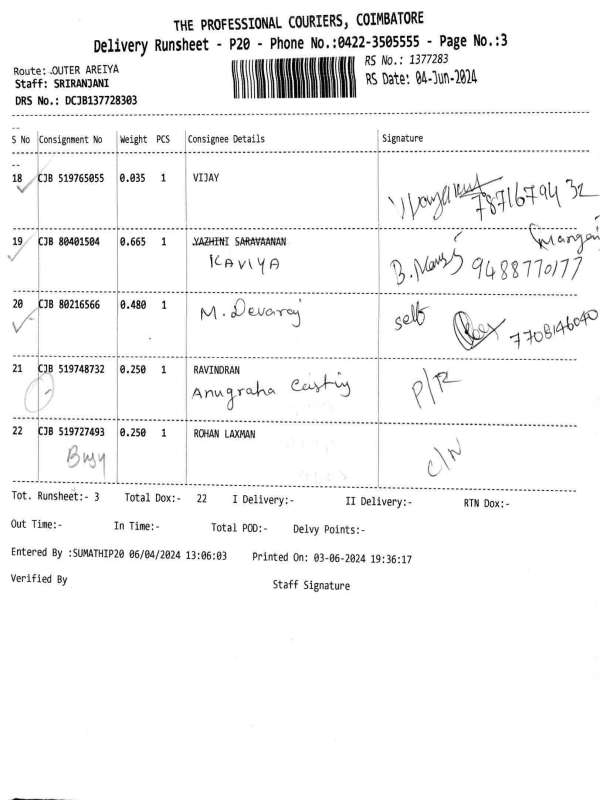 THE PROFESSIONAL COURIERS, COIMBATORE
Delivery Runsheet - P20 - Phone No.:0422-3505555 - Page No.:3
Route: .OUTER AREIYA
RS No.: 1377283
Staff: SRIRANJANI
RS Date: 04-Jun-2024
DRS No.: DCJB137728303
S No Consignment No Weight PCS Consignee Details Signature
18 CJB 519765055 0.035 1 VIJAY
7871679432
19 CJB 80401504 0.665 1 .YAZHINI SARAVAANAN
KAVIYA
9488770177
20 CJB 80216566 0.480 1 M. Devaraj self
7708146040
21 CJB 519748732 0.250 1 RAVINDRAN
Anugraha P/R
22 CJB 519727493 0.250 1 ROHAN LAXMAN
Busy C/N
Tot. Runsheet:- 3 Total Dox:- 22 I Delivery:- II Delivery:- RTN Dox:-
Out Time:- In Time:- Total POD:- Delvy Points:-
Entered By :SUMATHIP20 06/04/2024 13:06:03 Printed On: 03-06-2024 19:36:17
Verified By Staff Signature